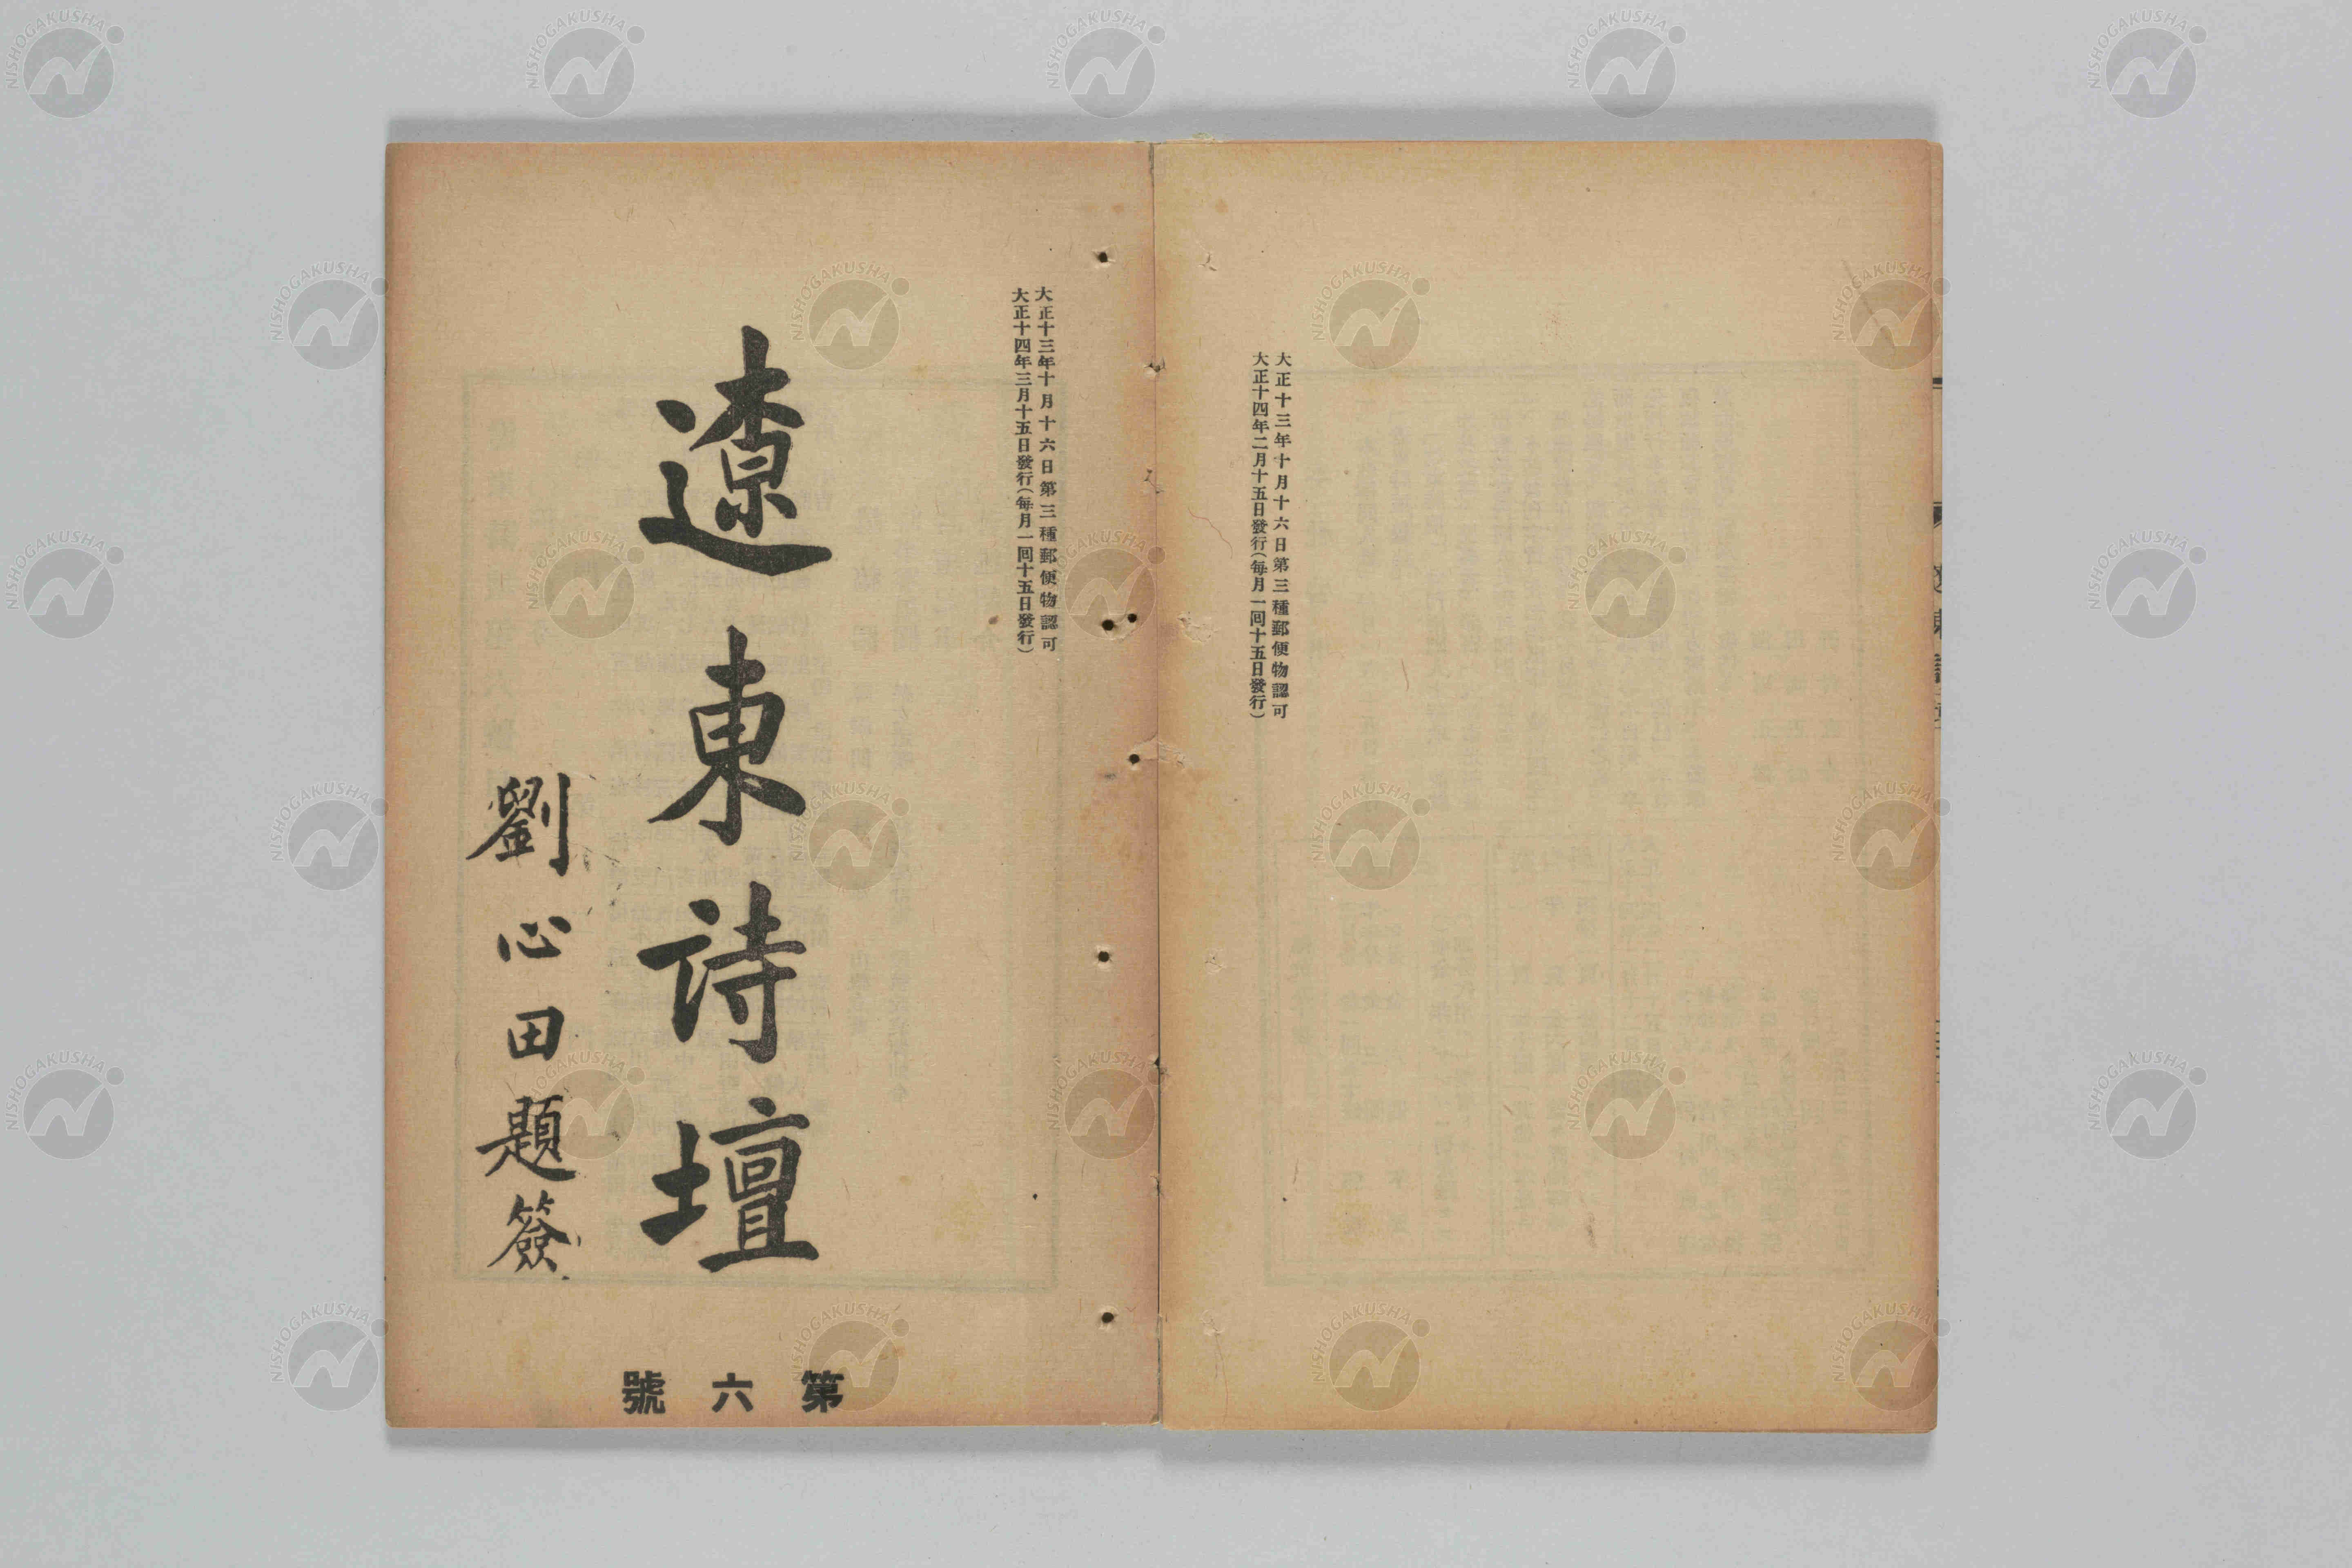 大正十三年十月十六日第三種郵便物認可
大正十四年二月十五日發行(每月一回十五日發行)
大正十三年十月十六日第三種郵便物認可
大正十四年三月十五日發行(每月一回十五日發行)
遼東詩壇
劉心田題簽
第六號
NISHOGAKUSHA